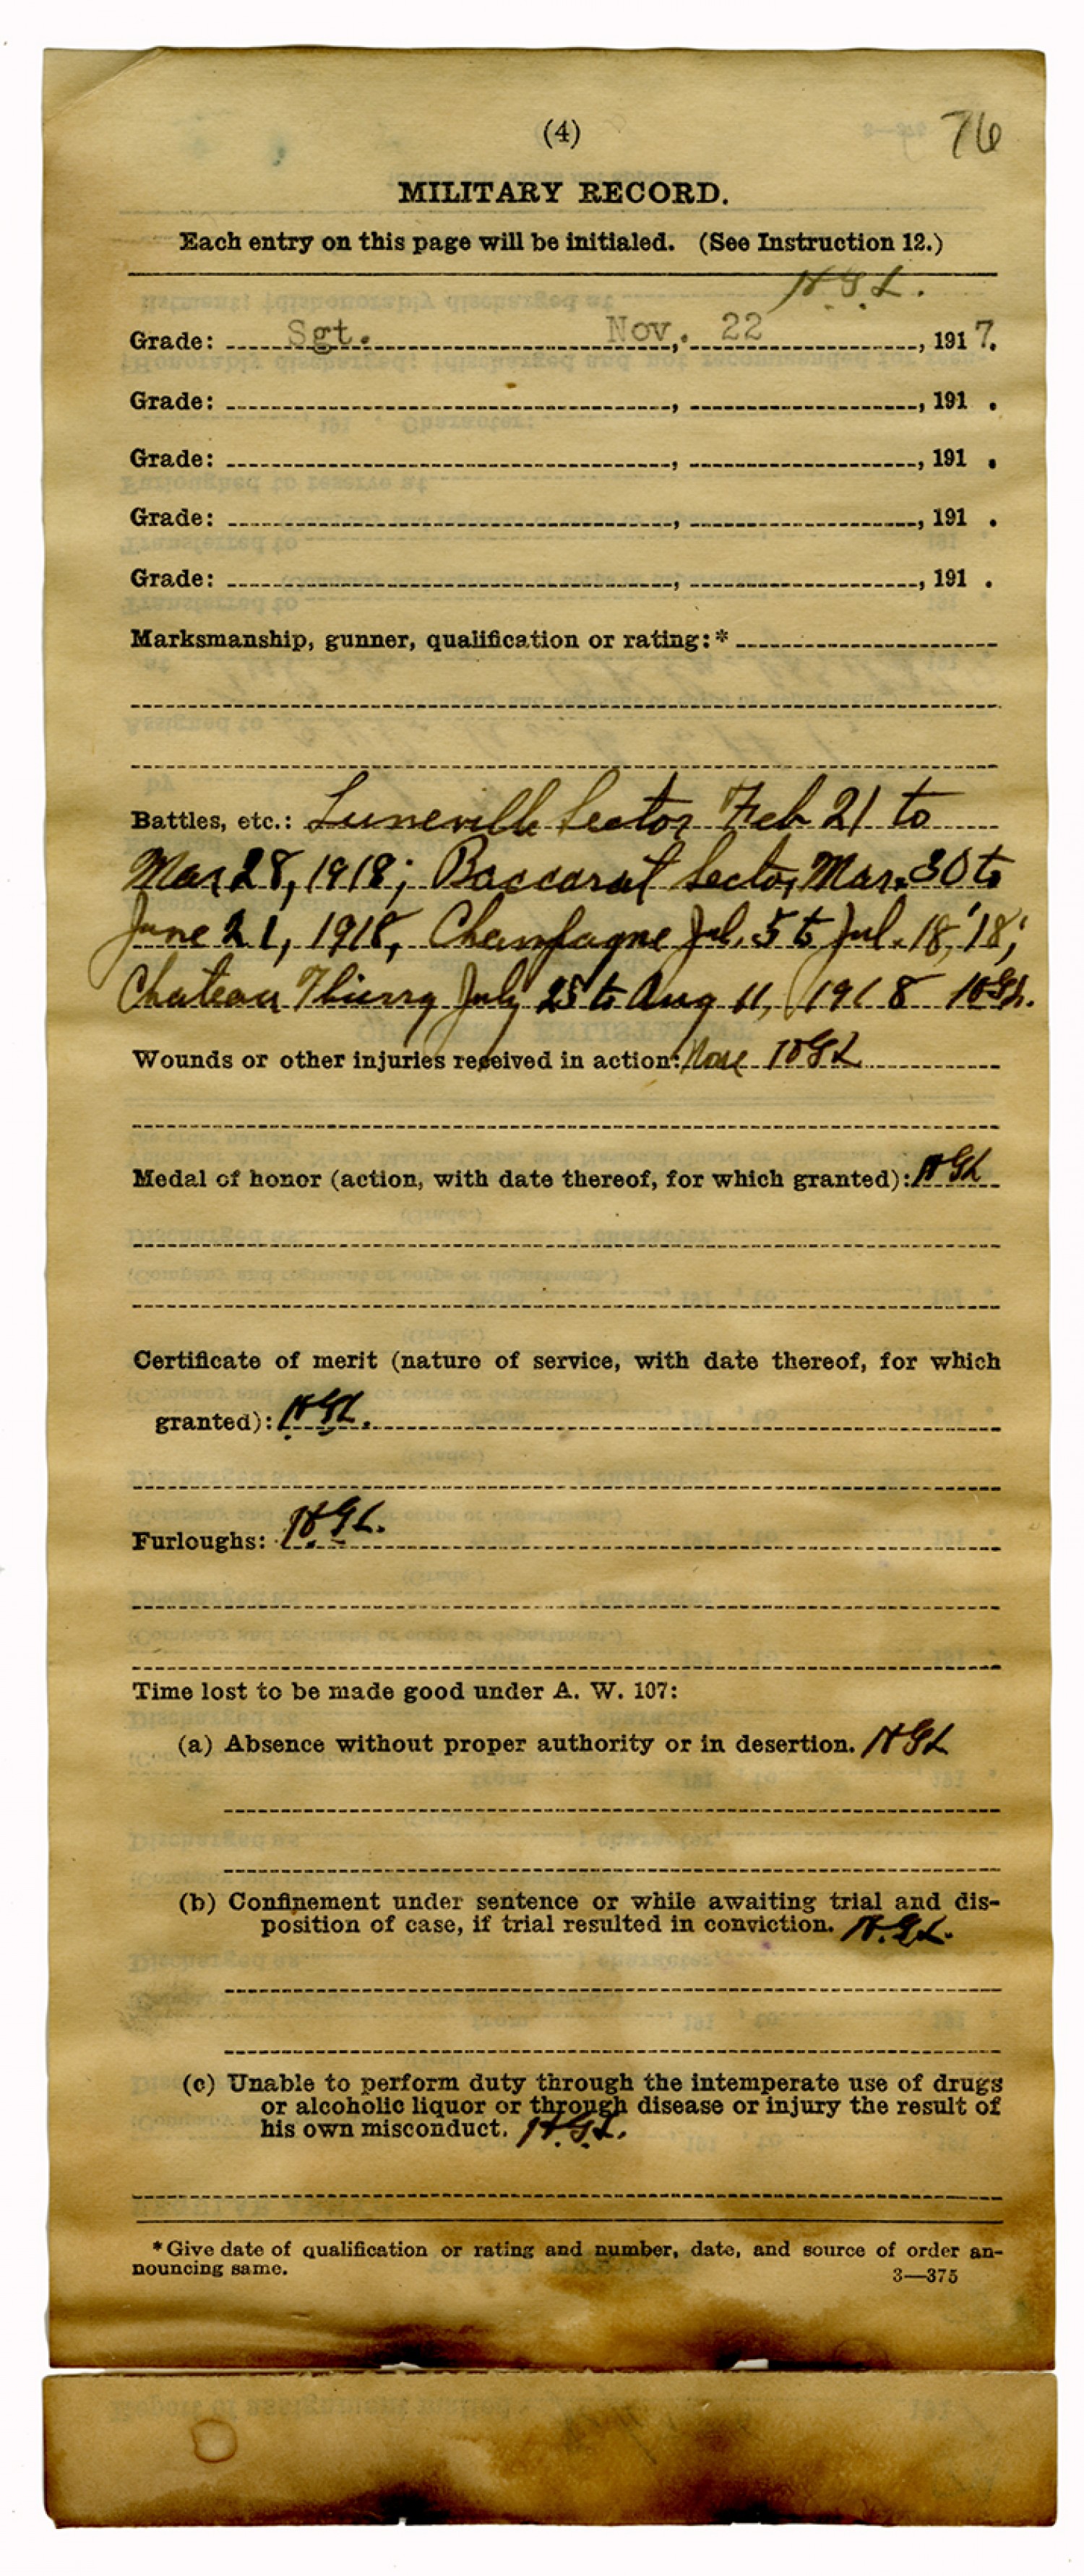 (4)
76
MILITARY RECORD.
Each entry on this page will be initialed. (See Instruction 12.)
H.G.L.
Grade: Sgt. Nov. 22, 1917.
Grade: , , 191 .
Grade: , , 191 .
Grade: , , 191 .
Grade: , , 191 .
Marksmanship, gunner, qualification or rating:*
Battles, etc.: Luneville Sector Feb 21 to
Mar 28, 1918; Baccarat Sector, Mar. 30 to
June 21, 1918, Champagne Jul. 5 to Jul. 18, '18;
Chateau Thierry July 25 to Aug 11, 1918 HGL.
Wounds or other injuries received in action: None HGL
Medal of honor (action, with date thereof, for which granted): HGL
Certificate of merit (nature of service, with date thereof, for which
granted): HGL.
Furloughs: HGL.
Time lost to be made good under A. W. 107:
(a) Absence without proper authority or in desertion. HGL
(b) Confinement under sentence or while awaiting trial and dis-
position of case, if trial resulted in conviction. H.G.L.
(c) Unable to perform duty through the intemperate use of drugs
or alcoholic liquor or through disease or injury the result of
his own misconduct. H.G.L.
*Give date of qualification or rating and number, date, and source of order an-
nouncing same.
3—375